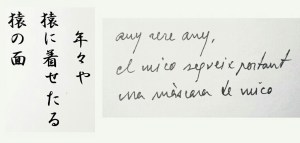 年々や
猿に着せたる
猿の面
any rere any,
el mico segueix portant
una màscara de mico